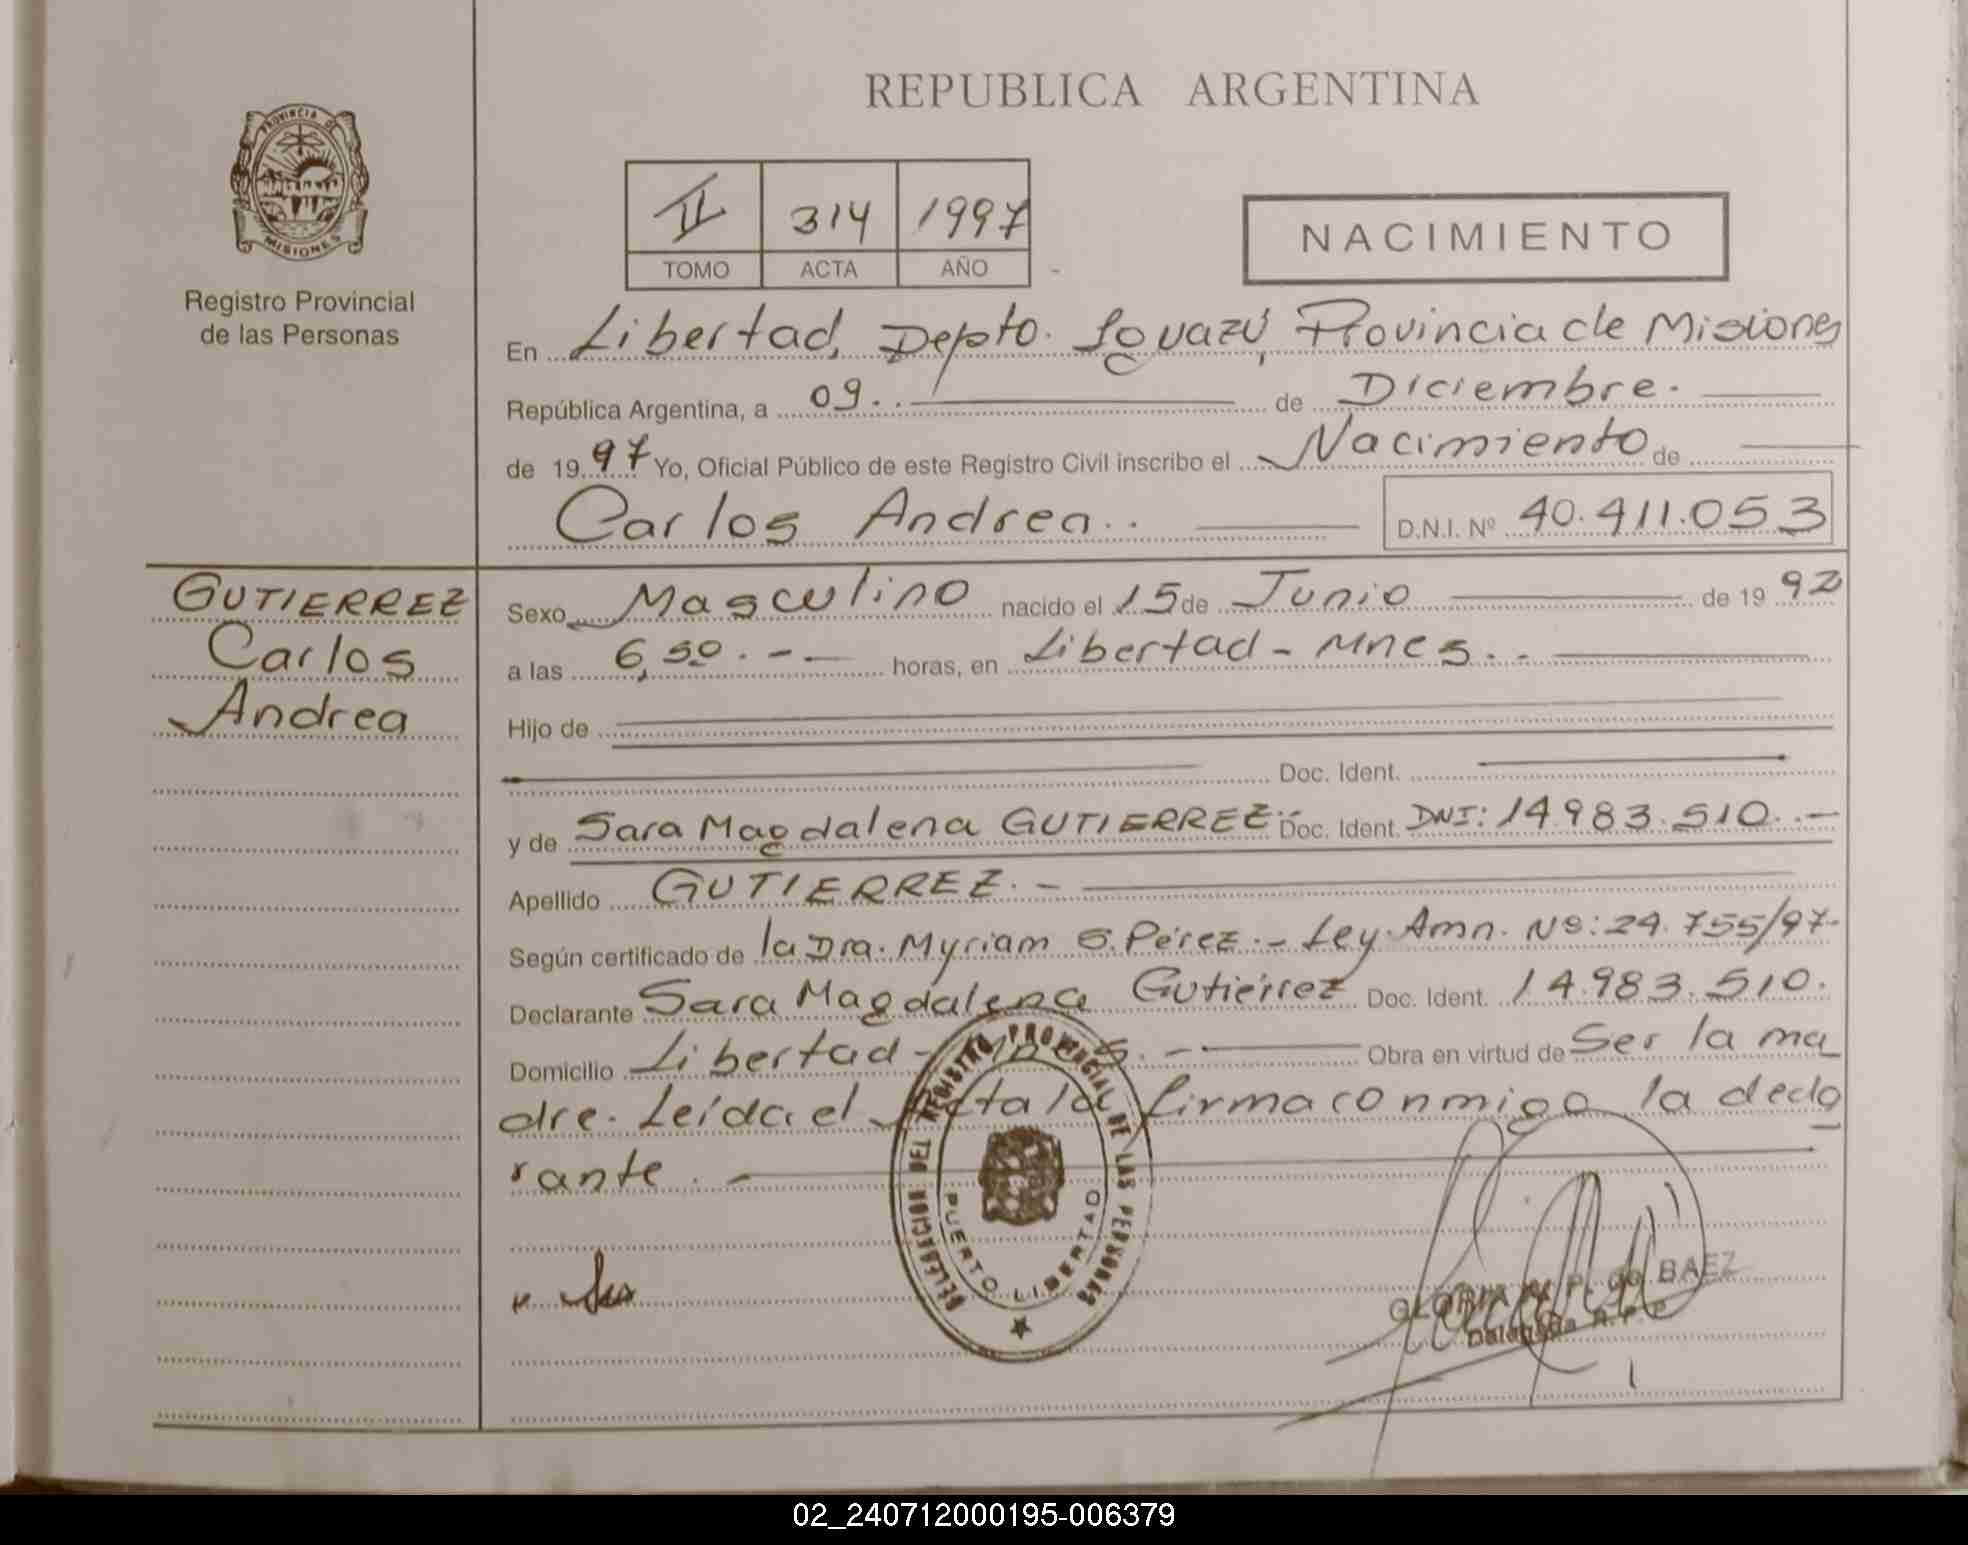 REPUBLICA ARGENTINA
PROVINCIA DE
MISIONES
Registro Provincial
de las Personas
II 314 1997
TOMO ACTA AÑO
NACIMIENTO
En Libertad, Depto. Iguazú, Provincia de Misiones
República Argentina, a 09.. de Diciembre.
de 1997 Yo, Oficial Público de este Registro Civil inscribo el Nacimiento de
Carlos Andrea.. D.N.I. Nº 40.411.053
GUTIERREZ
Carlos
Andrea
Sexo Masculino nacido el 15 de Junio de 1992
a las 6,50.-- horas, en Libertad - Mnes..
Hijo de
Doc. Ident.
y de Sara Magdalena GUTIERREZ.- Doc. Ident. DNI: 14.983.510..-
Apellido GUTIERREZ.-
Según certificado de la Dra. Myriam S. Pérez.- Ley Amn. Nº: 24.755/97.
Declarante Sara Magdalena Gutiérrez Doc. Ident. 14.983.510.
Domicilio Libertad - Mnes.- Obra en virtud de Ser la ma_
dre. Leída el Acta la firma conmigo la decla_
rante.
DELEGACION DEL REGISTRO PROVINCIAL DE LAS PERSONAS
PUERTO LIBERTAD
GLORIA P. de BAEZ
Delegada R.P.P.
02_240712000195-006379